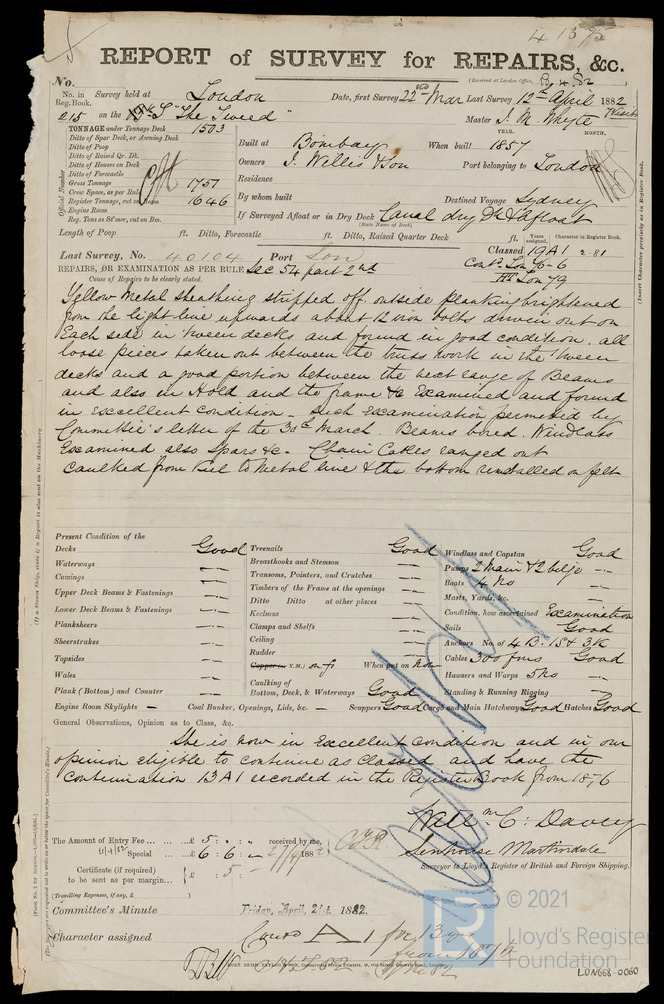 4 13 75
REPORT of SURVEY for REPAIRS, &c.
(Received at London Office,
No.
No. in Reg. Book. Survey held at London Date, first Survey 22nd Mar Last Survey 12th April 1882
215 on the "The Tweed" Master J. M. Whyte
TONNAGE under Tonnage Deck 1503
YEAR. MONTH.
Ditto of Spar Deck, or Awning Deck
Ditto of Poop
Built at Bombay When built 1857
Ditto of Raised Qr. Dk.
Ditto of Houses on Deck
Owners J. Willis & Son Port belonging to London
Ditto of Forecastle
Gross Tonnage 1751
Residence
Crew Space, as per Rule
Register Tonnage, cut on Beam 1646
By whom built Destined Voyage Sydney
Engine Room
Reg. Tons as St'mer, cut on Bm.
Official Number
If Surveyed Afloat or in Dry Dock Canal dry Dk & afloat
(State Name of Dock)
Length of Poop ft. Ditto, Forecastle ft. Ditto, Raised Quarter Deck ft.
Years assigned. Character in Register Book.
Last Survey, No. 40104 Port Lon Classed 19 A 1 2-81
REPAIRS, OR EXAMINATION AS PER RULE Sec 54 part 2nd
Cause of Repairs to be clearly stated.
Yellow Metal sheathing stripped off outside planking brightened
from the light line upwards about 12 iron bolts driven out on
Each side in 'tween decks and found in good condition. all
loose pieces taken out between the truss work in the 'tween
decks and a good portion between the next range of Beams
and also in Hold and the frame &c Examined and found
in excellent condition - Such Examination permitted by
Committee's letter of the 30th March Beams bored. Windlass
Examined also Spars &c - Chain Cables ranged out
caulked from Keel to Metal line & the bottom remetalled on felt
Present Condition of the
Decks Good Treenails Good Windlass and Capstan Good
Waterways Breasthooks and Stemson Pumps 2 Main & 2 bilge
Comings Transoms, Pointers, and Crutches Boats 4 No
Upper Deck Beams & Fastenings Timbers of the Frame at the openings Masts, Yards, &c.
Lower Deck Beams & Fastenings Ditto Ditto at other places Condition, how ascertained Examination
Planksheers Keelsons Sails Good
Sheerstrakes Clamps and Shelfs Anchors No. of 4 B. 1 S & 3 K
Topsides Ceiling Cables 300 fms Good
Wales Rudder Hawsers and Warps 5 No
Copper (or Y.M.) on f When put on Now
Plank (Bottom) and Counter Caulking of Bottom, Deck, & Waterways Good Standing & Running Rigging
Engine Room Skylights - Coal Bunker, Openings, Lids, &c. - Scuppers Good Cargo and Main Hatchways Good Hatches Good
General Observations, Opinion as to Class, &c.
She is now in Excellent condition and in our
opinion eligible to continue as classed and have the
Continuation 13 A 1 recorded in the Register Book from 1876
The Amount of Entry Fee ... ... ...£ 5 : " : " received by me,
Special ... ...£ 6 : 6 : " 188
Certificate (if required) to be sent as per margin... £ 5
(Travelling Expenses, if any, £ )
Senhouse Martindale
Surveyor to Lloyd's Register of British and Foreign Shipping.
Committee's Minute Friday, April 21st. 1882.
Character assigned Contd A 1 for 13 yrs
from 1876
(If a Steam Ship, state if a Report is also sent on the Machinery.
(Insert Character precisely as in Register Book.
© 2021
Lloyd's Register
Foundation
LON668-0060